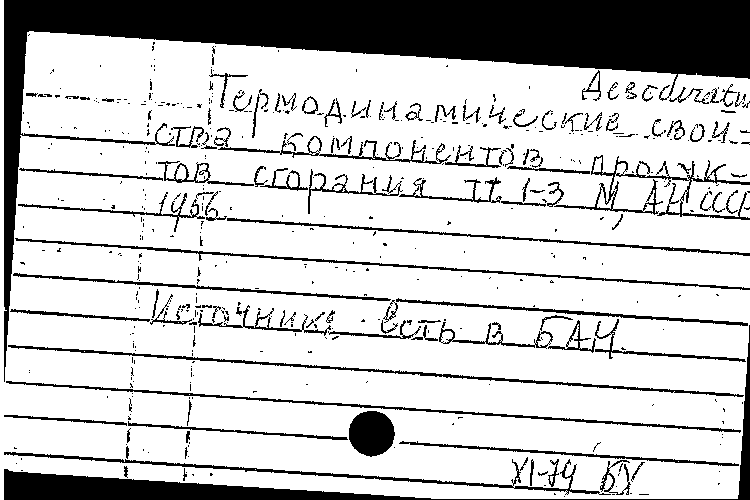 Desideratum
Термодинамические свой-
ства компонентов продук-
тов сгорания тт. 1-3 М, АН. СССР
1956.
Источника есть в БАН.
XI-74 БХ